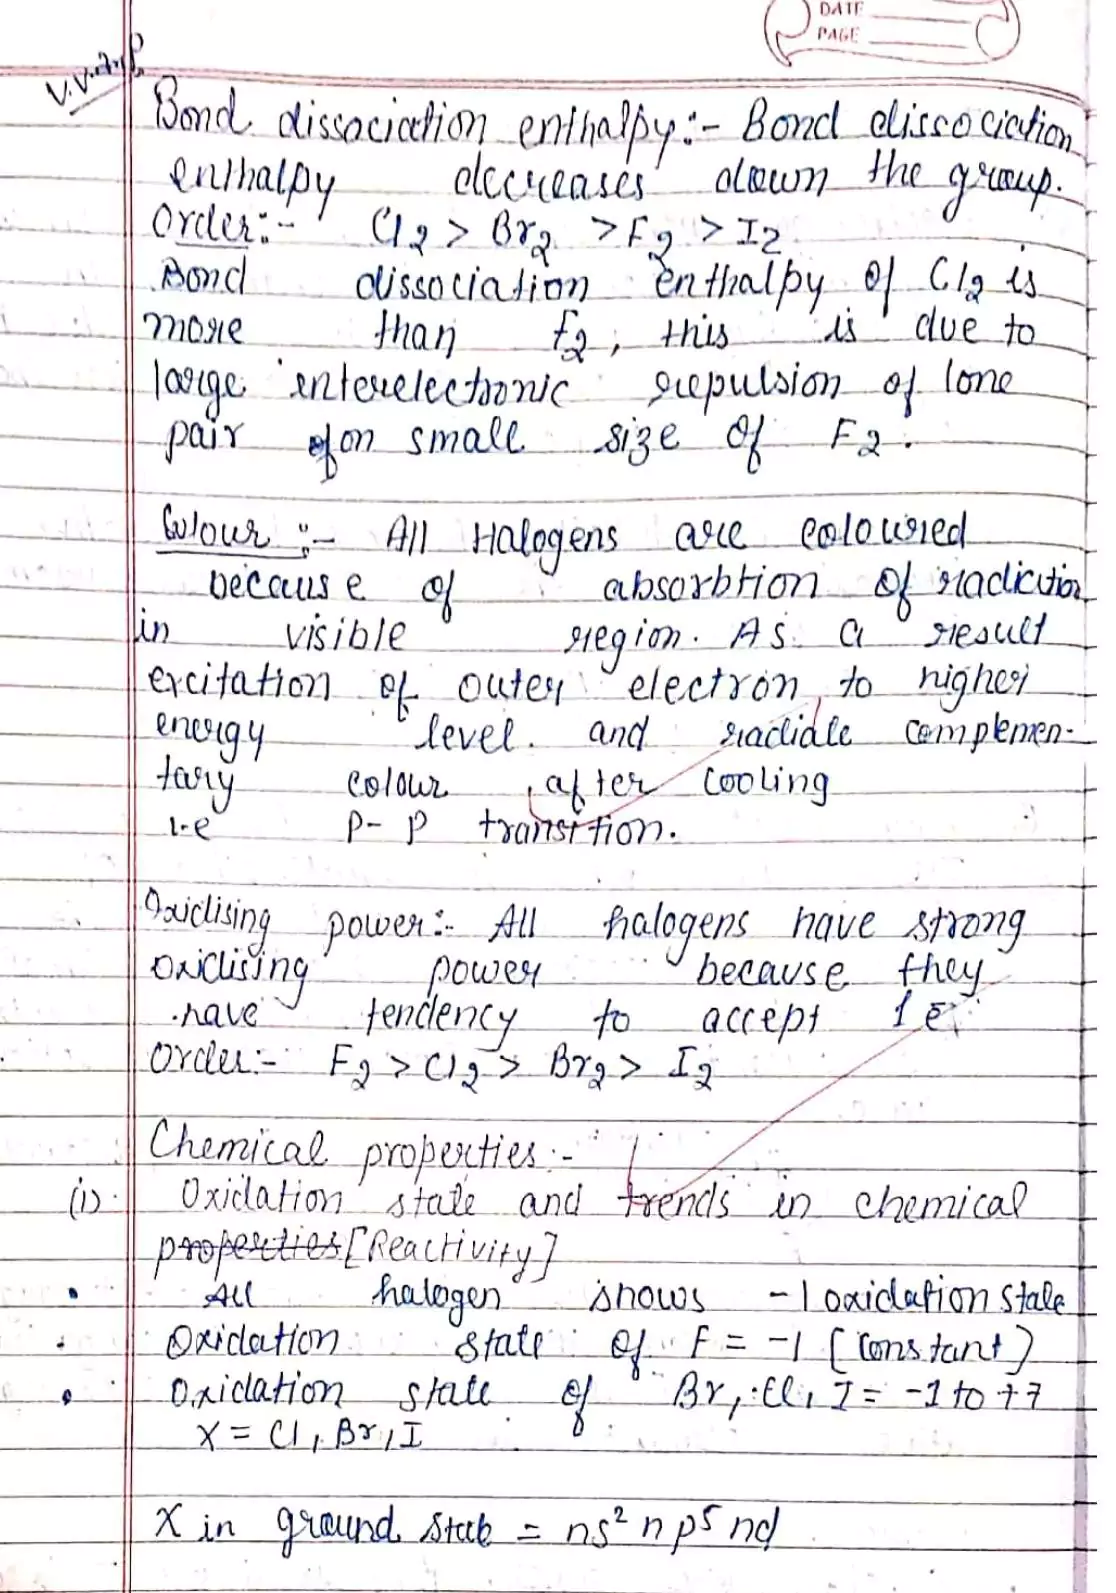 DATE
PAGE
V.V.Imp
Bond dissociation enthalpy:- Bond dissociation
enthalpy decreases down the group.
Order:- Cl2 > Br2 > F2 > I2
Bond dissociation enthalpy of Cl2 is
more than F2, this is due to
large interelectronic repulsion of lone
pair on small size of F2.
Colour :- All Halogens are coloured
because of absorbtion of radiation
in visible region. As a result
excitation of outer electron to higher
energy level. and radiate complemen-
tary colour after cooling
i-e P-P transition.
Oxidising power:- All halogens have strong
oxidising power because they
have tendency to accept 1 e̅
Order:- F2 > Cl2 > Br2 > I2
Chemical properties:-
(i) Oxidation state and trends in chemical
properties [Reactivity]
• All halogen shows -1 oxidation state
• Oxidation state of F = -1 [Constant)
• Oxidation state of Br, Cl, I = -1 to +7
X = Cl, Br, I
X in ground state = ns² np⁵ nd